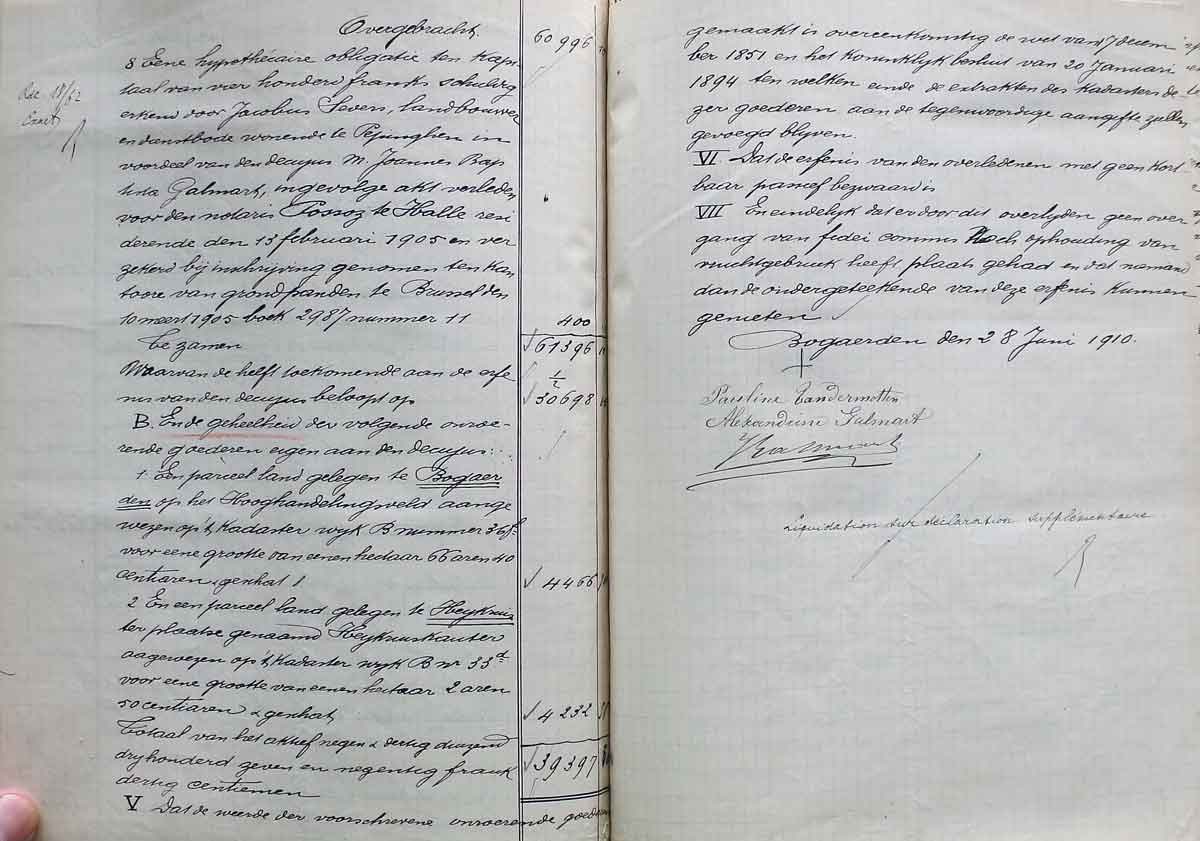 Overgebracht 60996
8 Eene hypothécaire obligatie ten kapi
taal van vier honderd frank schuldig
erkend door Jacobus Sevens, landbouwer
en dienstbode wonende te Pepinghen in
voordeel van den decujus M. Joannes Bap
tista Galmart, ingevolge akt verleden
voor den notaris Possoz te Halle resi
derende den 13 februari 1905 en ver
zekerd bij inschrijving genomen ten kan
toore van grondpanden te Brussel den
10 meert 1905 boek 2987 nummer 11 400
Te zamen 61396
Waarvan de helft toekomende aan de erfe 1/2
nis van den decujus beloopt op 30698
B. En de geheelheid der volgende onroe-
rende goederen eigen aan den decujus:
1. Een parceel land gelegen te Bogaer
den op het Hooghandelingveld aange
wezen op 't Kadaster wijk B nummer 36
voor eene grootte van eenen hectaar 66 aren 40
centiaren, geschat 1 4466
2 En een parceel land gelegen te Heykruis
ter plaatse genaamd Heykruiskauter
aagewezen op 't Kadaster wijk B nr 33d
voor eene grootte van eenen hectaar 2 aren
50 centiaren & geschat 4232
Totaal van het aktief negen & dertig duizend
dryhonderd zeven en negentig frank 39397
dertig centiemen
V Dat de weerde der voorschrevene onroerende goederen
gemaakt is overeenkomstig de wet van 17 decem
ber 1851 en het Koninklyk besluit van 20 Januari
1894 ten welken einde de extrakten des Kadasters de
zer goederen aan de tegenwoordige aangifte zullen
gevoegd blyven.
VI Dat de erfenis van den overledenen met geen kort
baar passief bezwaard is
VII En eindelyk dat er door dit overlyden geen over
gang van fidei commis noch ophouding van
vruchtgebruik heeft plaats gehad en dat niemand
dan de ondergeteekende van deze erfenis kunnen
genieten
Bogaerden den 28 Juni 1910.
Pauline Vandermotten
Alexandrine Galmart
Liquidation sur déclaration supplémentaire